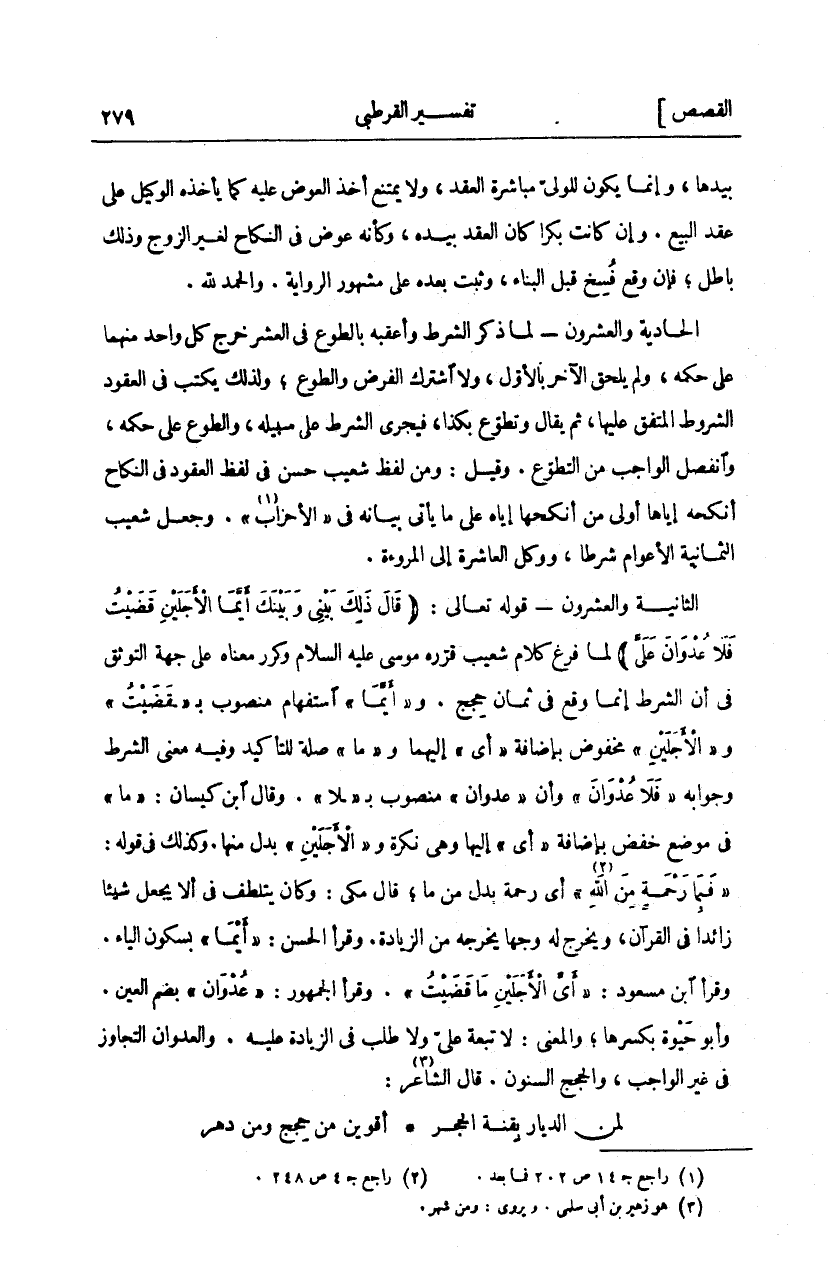 القصص] تفسير القرطبى ٢٧٩
بيدها ، وإنما يكون للولىّ مباشرة العقد ، ولا يمتنع أخذ العوض عليه كما يأخذه الوكيل على
عقد البيع . وإن كانت بكرا كان العقد بيده ، وكأنه عوض فى النكاح لغير الزوج وذلك
باطل ؛ فإن وقع فُسِخ قبل البناء ، وثبت بعده على مشهور الرواية . والحمد لله .
الحادية والعشرون – لما ذكر الشرط وأعقبه بالطوع فى العشر خرج كل واحد منهما
على حكمه ، ولم يلحق الآخر بالأوّل ، ولا آشترك الفرض والطوع ؛ ولذلك يكتب فى العقود
الشروط المتفق عليها، ثم يقال وتطوّع بكذا، فيجرى الشرط على سبيله، والطوع على حكمه ،
وآنفصل الواجب من التطوّع . وقيل : ومن لفظ شعيب حسن فى لفظ العقود فى النكاح
أنكحه إياها أولى من أنكحها إياه على ما يأتى بيانه فى « الأحزاب(١) » . وجعل شعيب
الثمانية الأعوام شرطا ، ووكل العاشرة إلى المروءة .
الثانية والعشرون – قوله تعالى : ﴿ قَالَ ذَلِكَ بَيْنِى وَبَيْنَكَ أَيَّمَا الْأَجَلَيْنِ قَضَيْتُ
فَلَا عُدْوَانَ عَلَىَّ ﴾ لما فرغ كلام شعيب قرّره موسى عليه السلام وكرر معناه على جهة التوثق
فى أن الشرط إنما وقع فى ثمان حِجج . و« أَيَّمَا » آستفهام منصوب بـ« قَضَيْتُ »
و « الْأَجَلَيْنِ » مخفوض بإضافة « أى » إليهما و « ما » صلة للتأكيد وفيه معنى الشرط
وجوابه « فَلَا عُدْوَانَ » وأن « عدوان » منصوب بـ« لا » . وقال آبن كيسان : « ما »
فى موضع خفض بإضافة « أى » إليها وهى نكرة و « الْأَجَلَيْنِ » بدل منها. وكذلك فى قوله :
« فَبِمَا رَحْمَةٍ مِنَ اللهِ(٢) » أى رحمة بدل من ما ؛ قال مكى : وكان يتلطف فى ألا يجعل شيئا
زائدا فى القرآن، ويخرج له وجها يخرجه من الزيادة. وقرأ الحسن : « أَيْمَا » بسكون الياء .
وقرأ آبن مسعود : « أَىَّ الْأَجَلَيْنِ مَا قَضَيْتُ » . وقرأ الجمهور : « عُدْوَان » بضم العين .
وأبو حَيْوة بكسرها ؛ والمعنى : لا تبعة علىّ ولا طلب فى الزيادة عليه . والعدوان التجاوز
فى غير الواجب ، والحجج السنون . قال الشاعر(٣) :
لمن الديار بِقنة الحجر * أقوين من حِججٍ ومن دهر
(١) راجع جـ ١٤ ص ٢٠٢ فما بعد . (٢) راجع جـ ٤ ص ٢٤٨ .
(٣) هو زهير بن أبى سلمى . ويروى : ومن شهر .